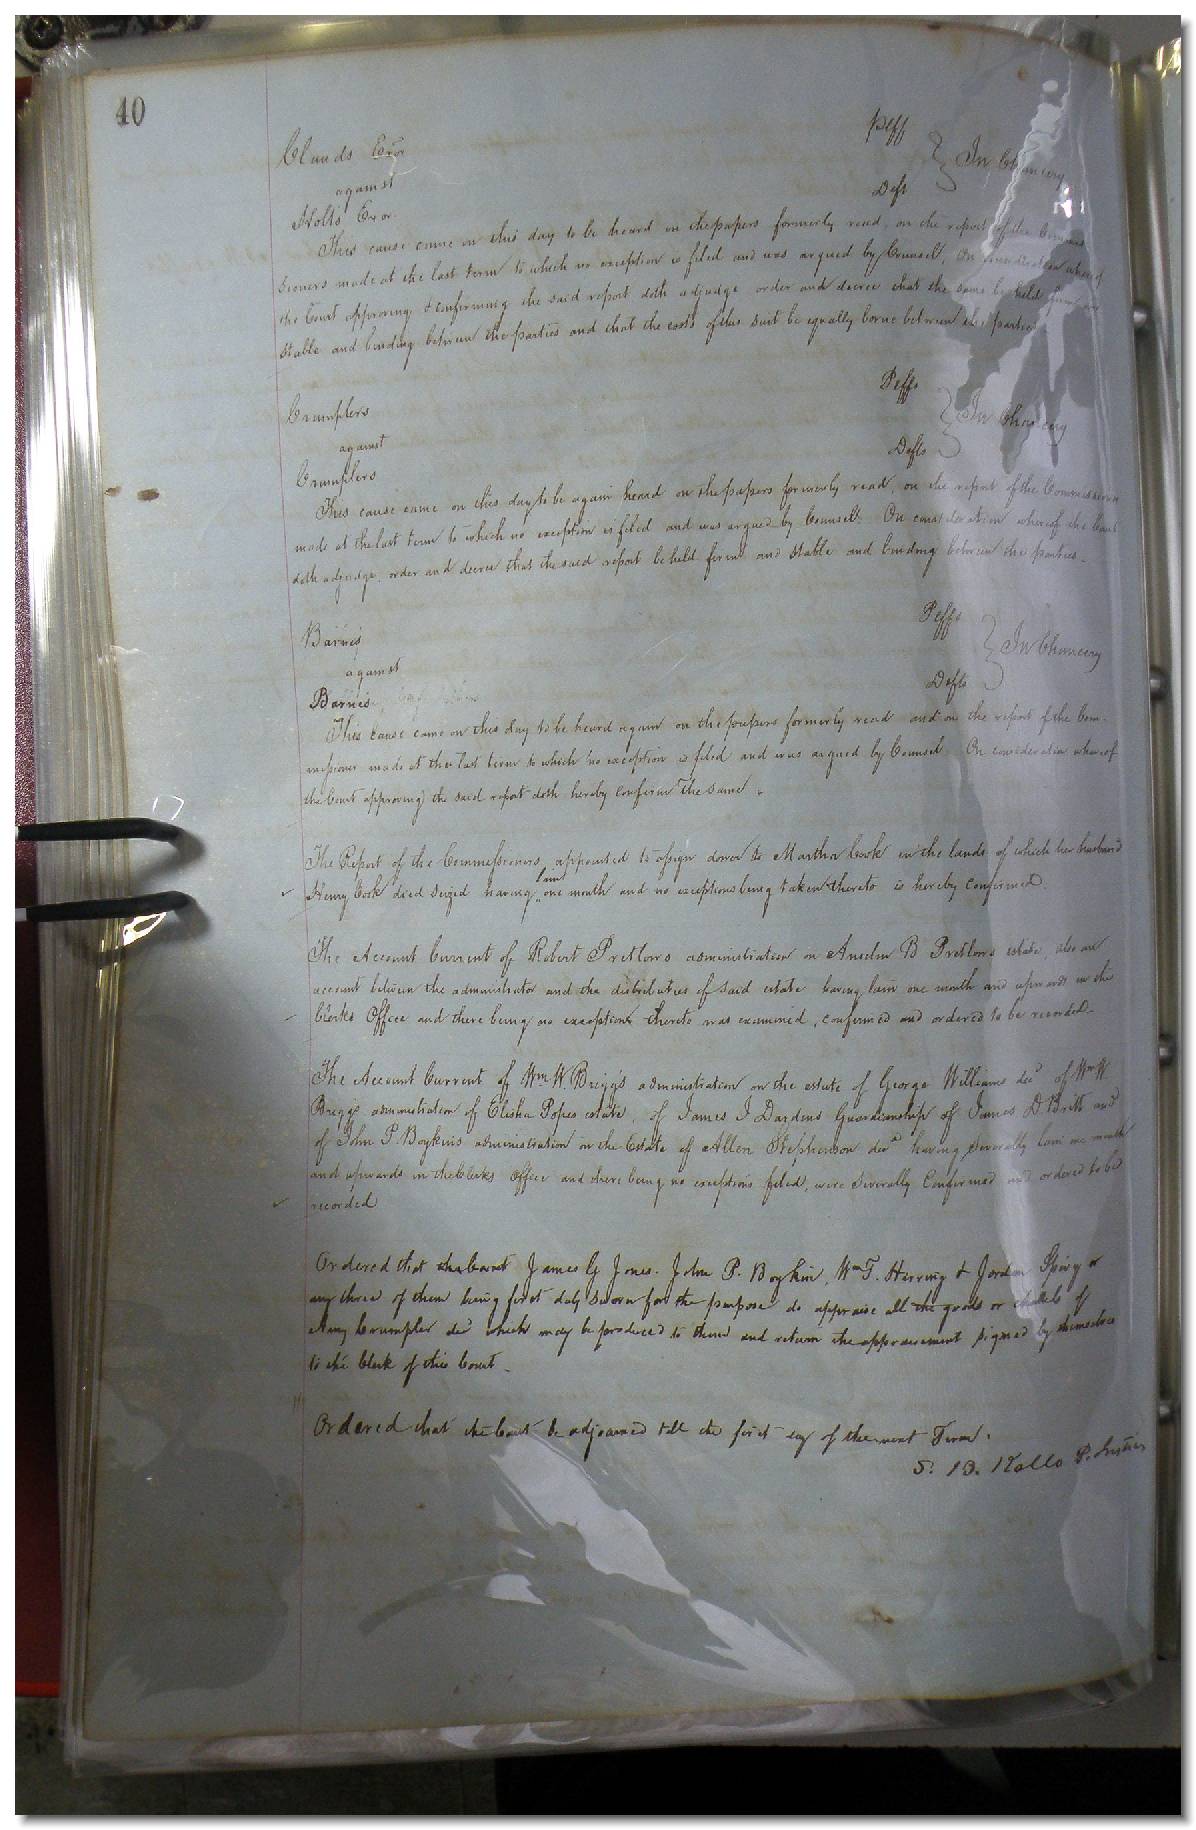 40
Clauds Exor Plff
against In Chancery
Nolts Exor Deft
This cause came on this day to be heard on the papers formerly read, on the report of the Commis
sioners made at the last term to which no exception is filed and was argued by Counsel, On consideration whereof
the Court approving & confirming the said report doth adjudge order and decree that the same be held firm and
stable and binding between the parties and that the costs of this suit be equally borne between the parties
Crumplers Plffs
against In Chancery
Crumplers Defts
This cause came on this day to be again heard on the papers formerly read, on the report of the Commissioners
made at the last term to which no exception is filed and was argued by Counsel. On consideration whereof the Court
doth adjudge, order and decree that the said report be held firm and stable and binding between the parties.
Barnes Plffs
against In Chancery
Barnes Defts
This cause came on this day to be heard again on the papers formerly read and on the report of the Com-
missioners made at the last term to which no exception is filed and was argued by Counsel On consideration whereof
the Court approving the said report doth hereby confirm the same.
The Report of the Commissioners appointed to assign dower to Martha Cook in the lands of which her husband
Henry Cook died seized having lain one month and no exceptions being taken thereto is hereby confirmed.
The Account Current of Robert Pretlows administration on Anselm B Pretlows estate, also an
account between the administrator and the distributees of said estate having lain one month and upwards in the
Clerks Office and there being no exceptions thereto was examined, confirmed and ordered to be recorded.
The Account Current of Wm W. Briggs administration on the estate of George Williams decd of Wm W
Briggs administration of Elisha Popes estate, of James J Dardens Guardianship of James D. Britt and
of John P. Boykins administration on the Estate of Allen Stephenson decd having severally lain one month
and upwards in the Clerks Office and there being no exceptions filed, were severally Confirmed and ordered to be
recorded
Ordered that James G Jones. John P. Boykin, Wm T. Herring & Jordan Spivy or
any three of them being first duly sworn for the purpose do appraise all the goods or chattels of
Amy Crumpler decd which may be produced to them and return the appraisement signed by themselves
to the Clerk of this Court.
Ordered that the Court be adjourned till the first day of the next Term.
S. B. Kello P. Justice